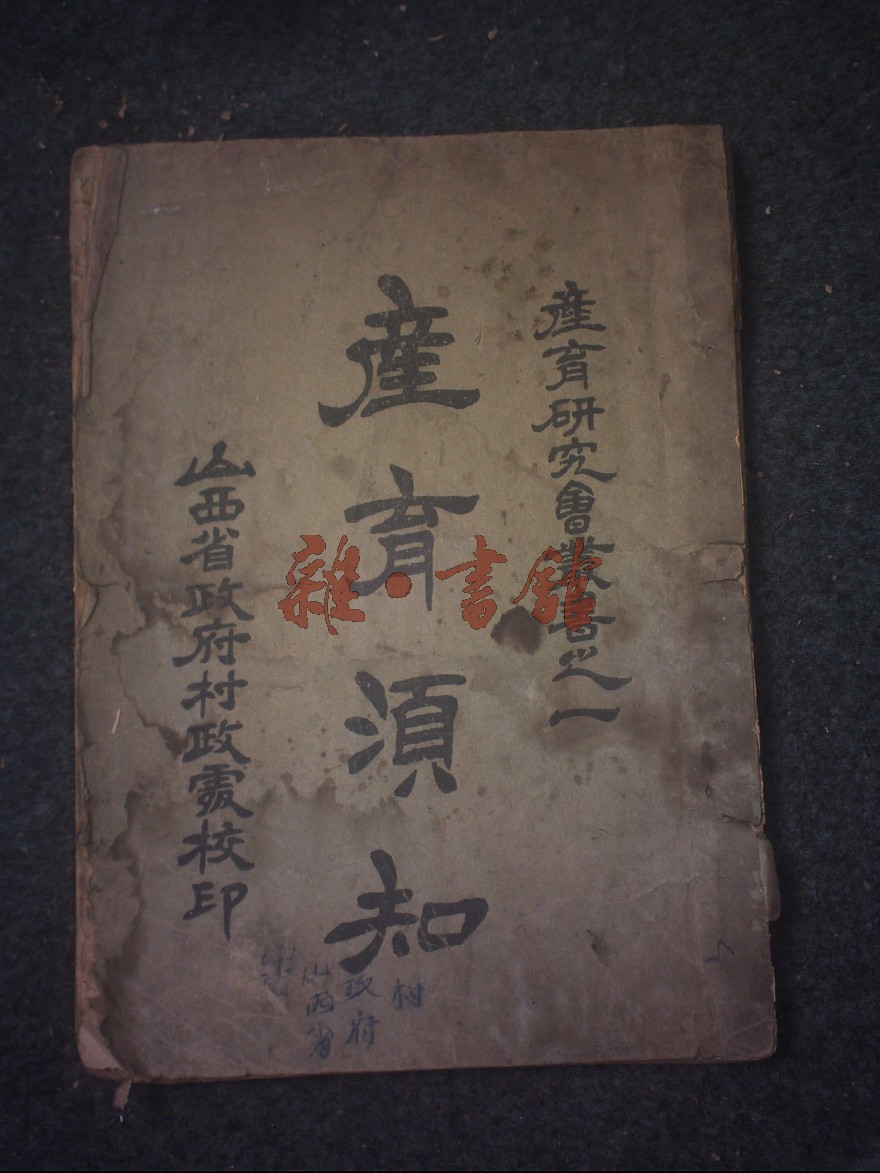 產育研究會叢書之一
產育須知
山西省政府村政處校印
雜·書館
村
政府
山西省